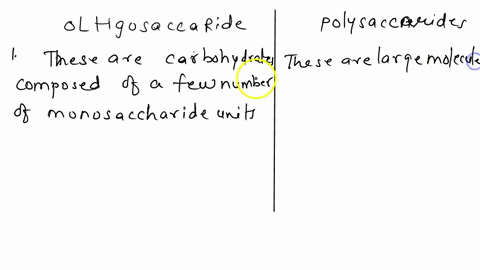 oLHgosaccaRide
polysaccarides
1. These are carbohydrates
composed of a few number
of monosaccharide units
These are large molecule